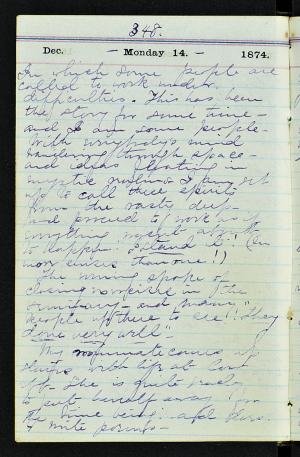 348.
Dec. - Monday 14. - 1874.
In which some people are
called to work under
difficulties. This has been
the story for some time -
and I am some people.
With everybody's mind
wandering through space -
and ideas floating in
mystic I am set
to call these spirits
from the vasty deep -
and proceed to work as if
everything wasn't about
to happen. I stand it! (in
more senses than one!)
The evening spoke of
closing exercise in the
and "many
people up there to see!! They
done very well"
My comes up
stairs with lips at
off. She is quite ready
to put herself away for
the time being - and
to write poems -